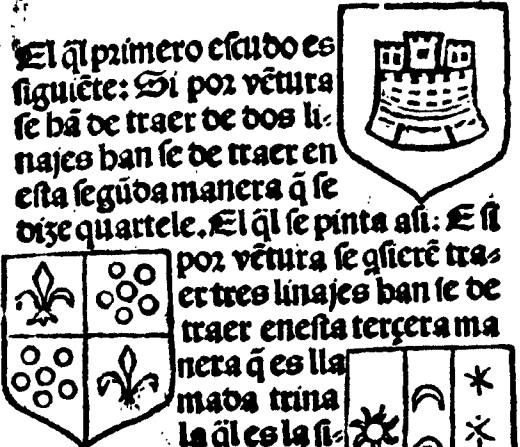 El q̃l primero escudo es
siguiẽte: Si por vẽtura
se hã de traer de dos li-
najes han se de traer en
esta segũda manera q̃ se
dize quartele. El q̃l se pinta asi: E si
por vẽtura se q̃sierẽ tra-
er tres linajes han se de
traer enesta terçera ma
nera q̃ es lla
mada trina
la q̃l es la si-